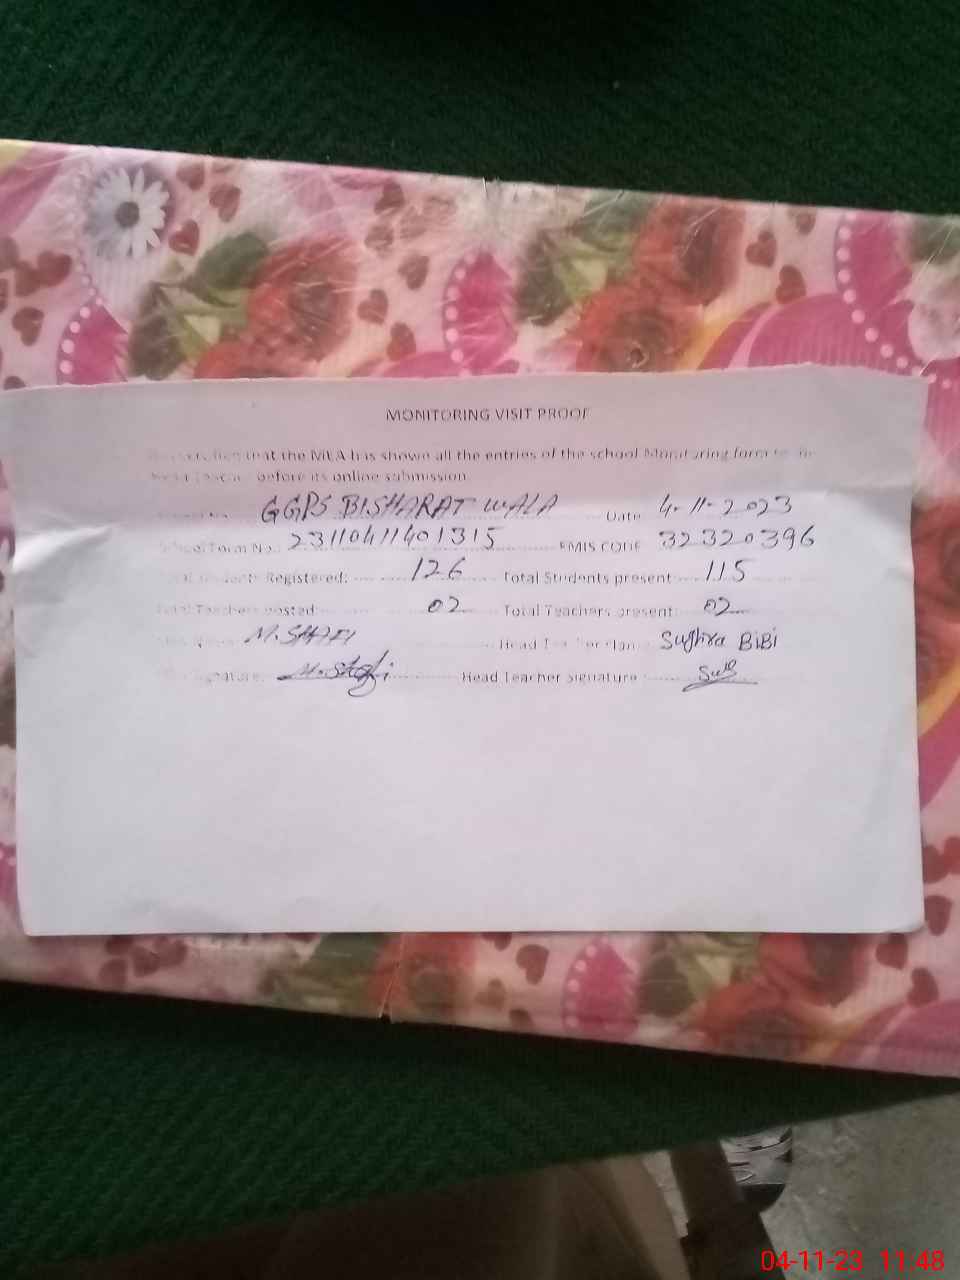 MONITORING VISIT PROOF
that the MEA has shown all the entries of the school Monitoring form to
before its online submission
GGPS BISHARAT WALA Date 4-11-2023
School Form No. 23110411401315 EMIS CODE 32320396
Registered: 126 Total Students present 115
Total Teachers posted 02 Total Teachers present: 02
M. SHAFI Head Teacher Sughra BiBi
Signature: M. Shafi Head Teacher Signature
04-11-23 11:48